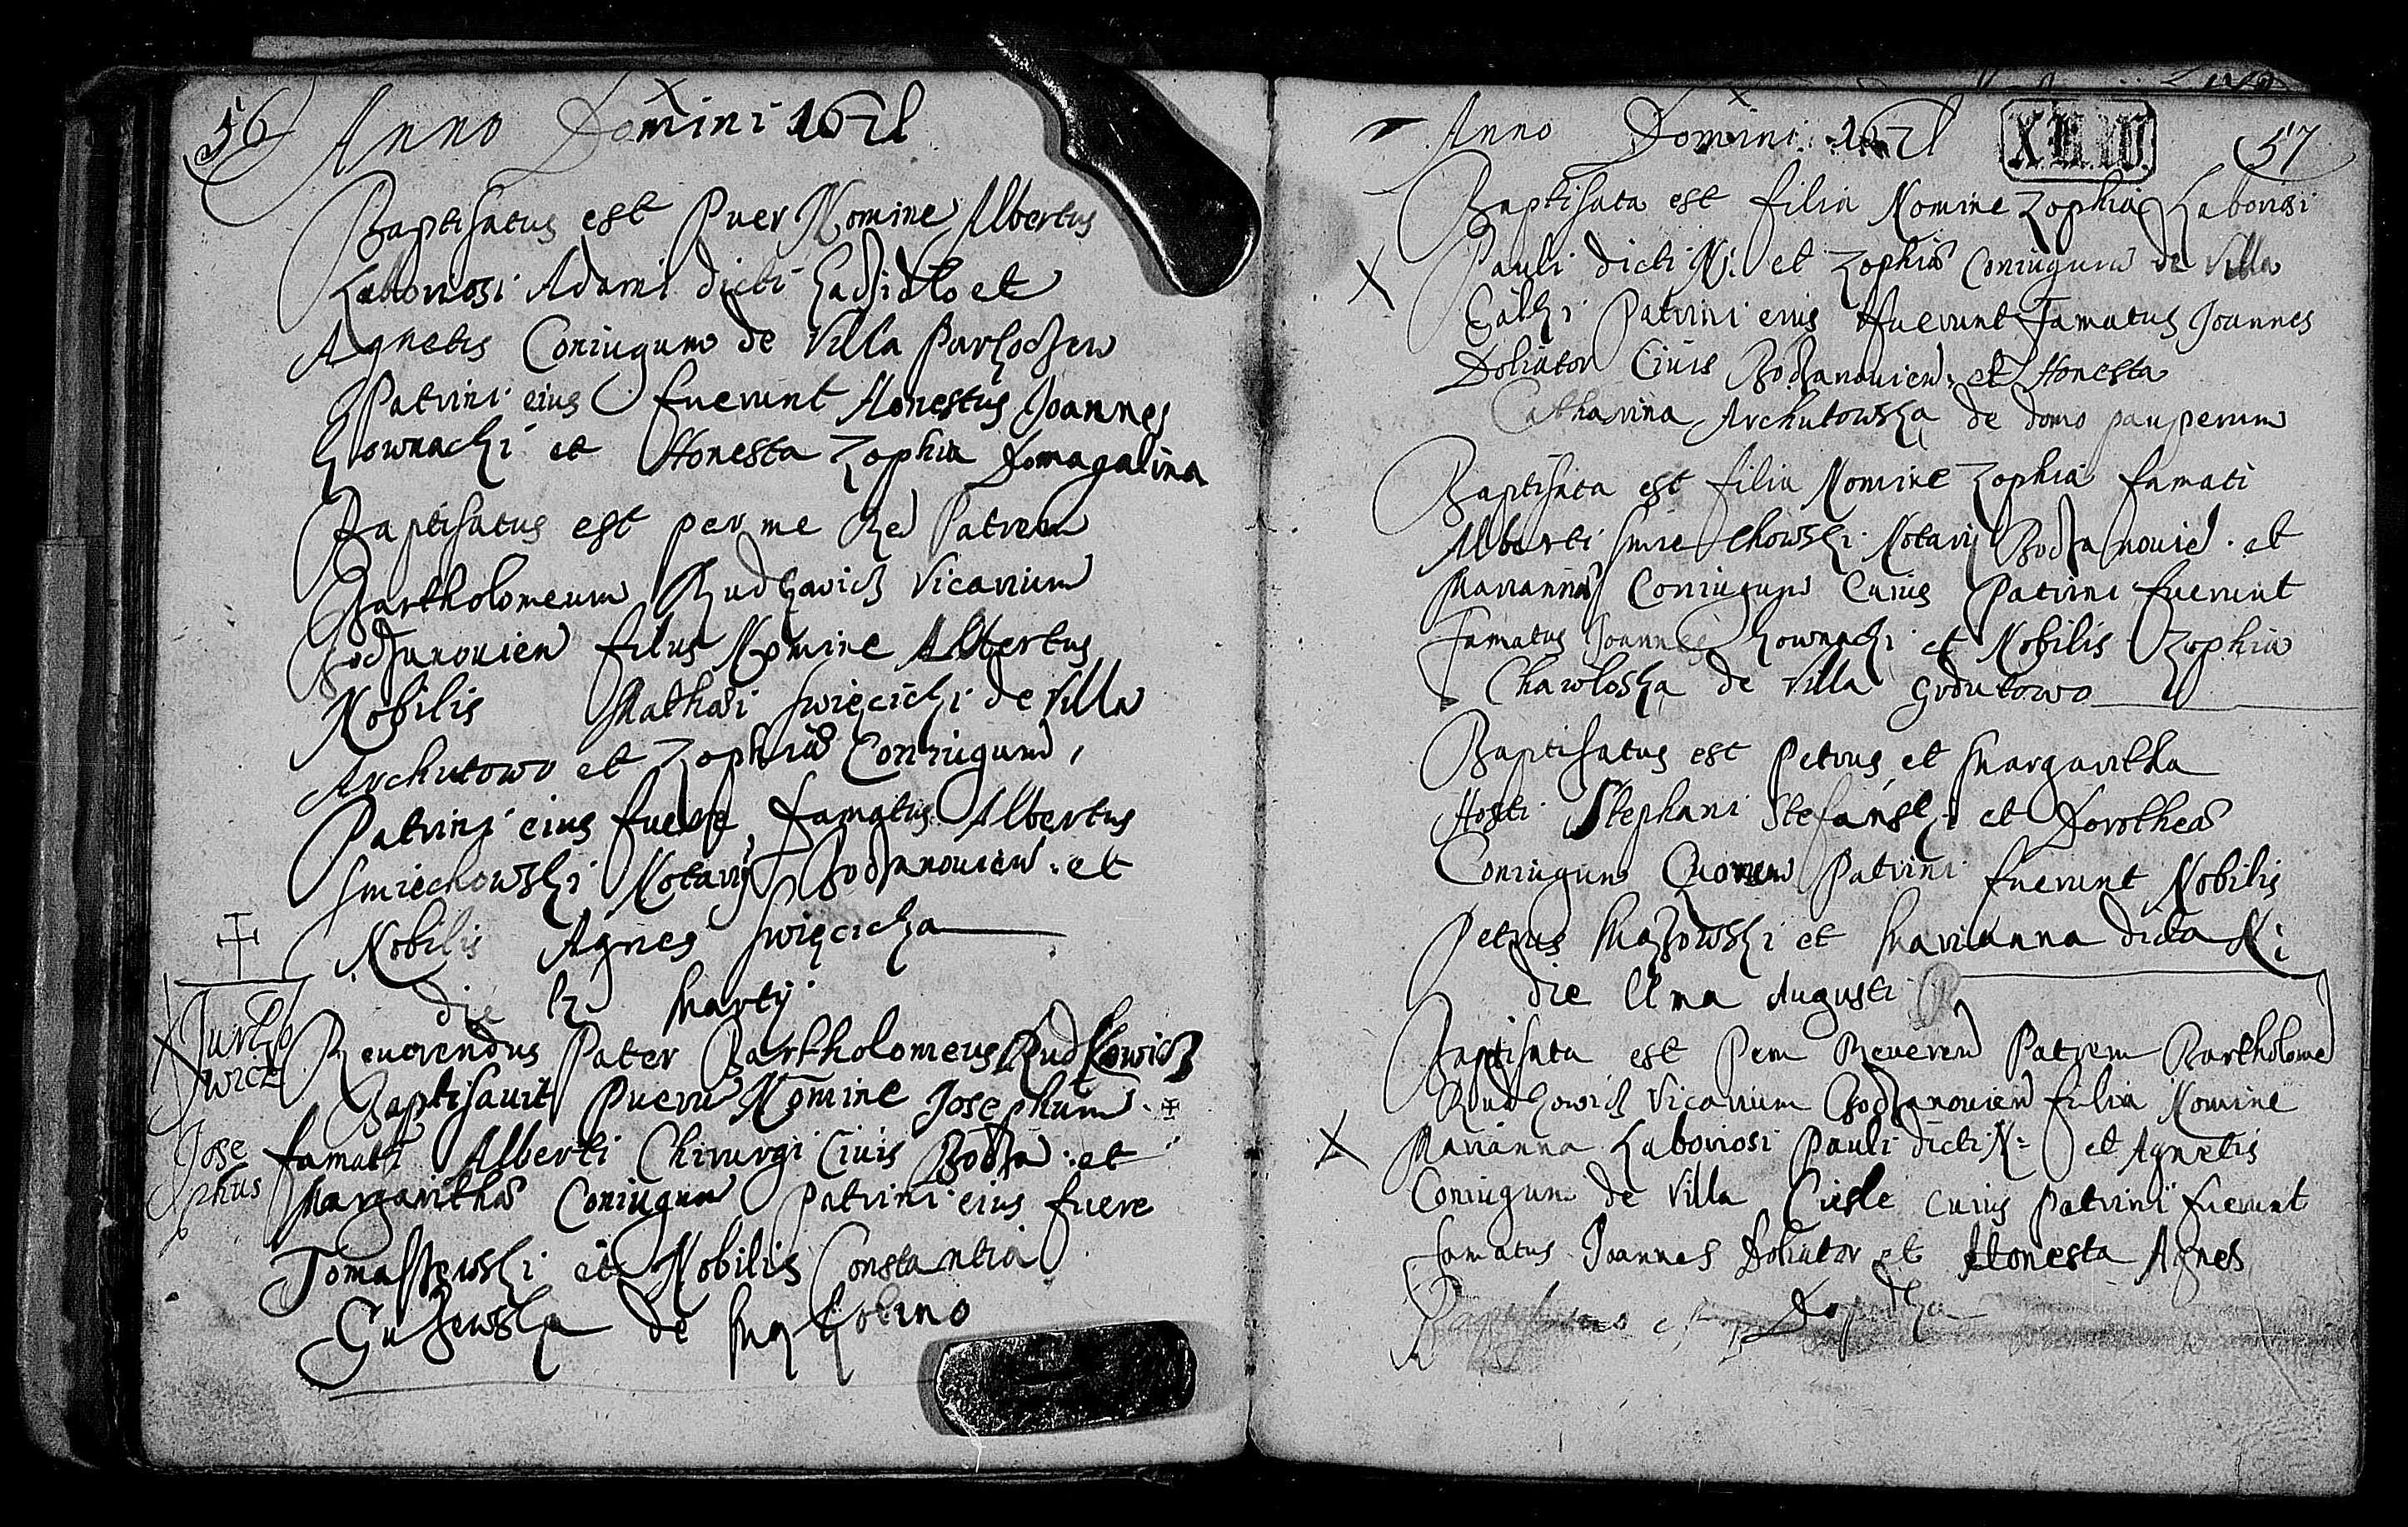 56 Anno Domini 1671
Baptisatus est Puer Nomine Albertus
Laboriosi Adami dicti et
Agnetis Coniugum de Villa Parkoczew
Patrini eius fuerunt Honestus Joannes
Kownacki et Honesta Zophia Domagalina
Baptisatus est per me Red Patrem
Bartholomeum Rudkowicz Vicarium
Bodzanouien filus Nomine Albertus
Nobilis Mathaei Swięcicki de Villa
Archutowo et Zophiae Coniugum,
Patrini eius fuere, famatus Albertus
Smiechowski Notarij Bodzanouien. et
Nobilis Agnes Swięcicka
die Martij
Reuerendus Pater Bartholomeus Rudkowicz
Baptisauit Pueru Nomine Josephum
famati Alberti Chirurgi Ciuis Bodza: et
Margarithae Coniugum Patrini eius fuere
Tomaszewski et Nobilis Constantia
de
Jurko
wicz
Jose
phus
Anno Domini 1671 XIII.IV. 57
Baptisata est filia Nomine Zophia Laboriosi
Pauli dicti N: et Zophiae Coniugum de Villa
Patrini eius fuerunt Famatus Joannes
Doliator Ciuis Bodzanouien: et Honesta
Catharina Archutowska de domo pauperum
Baptisata est filia Nomine Zophia famati
Alberti Smiechowski Notarij Bodzanouie. et
Mariannae Coniugum Cuius Patrini fuerunt
Famatus Joannes Kownacki et Nobilis Zophia
Chawloska de Villa Grodutowo
Baptisatus est Petrus et Margaritha
Hosti Stephani Stefanski et Dorotheae
Coniugum Quorum Patrini fuerunt Nobilis
Petrus Mazowski et Marianna dicta N:
die Augusti
Baptisata est Pem Reueren Patrem Bartholome
Rudkowicz Vicarium Bodzanouien filia Nomine
Marianna Laboriosi Pauli dicti N: et Agnetis
Coniugum de Villa Cuius Patrini fuerunt
famatus Joannes Doliator et Honesta Agnes